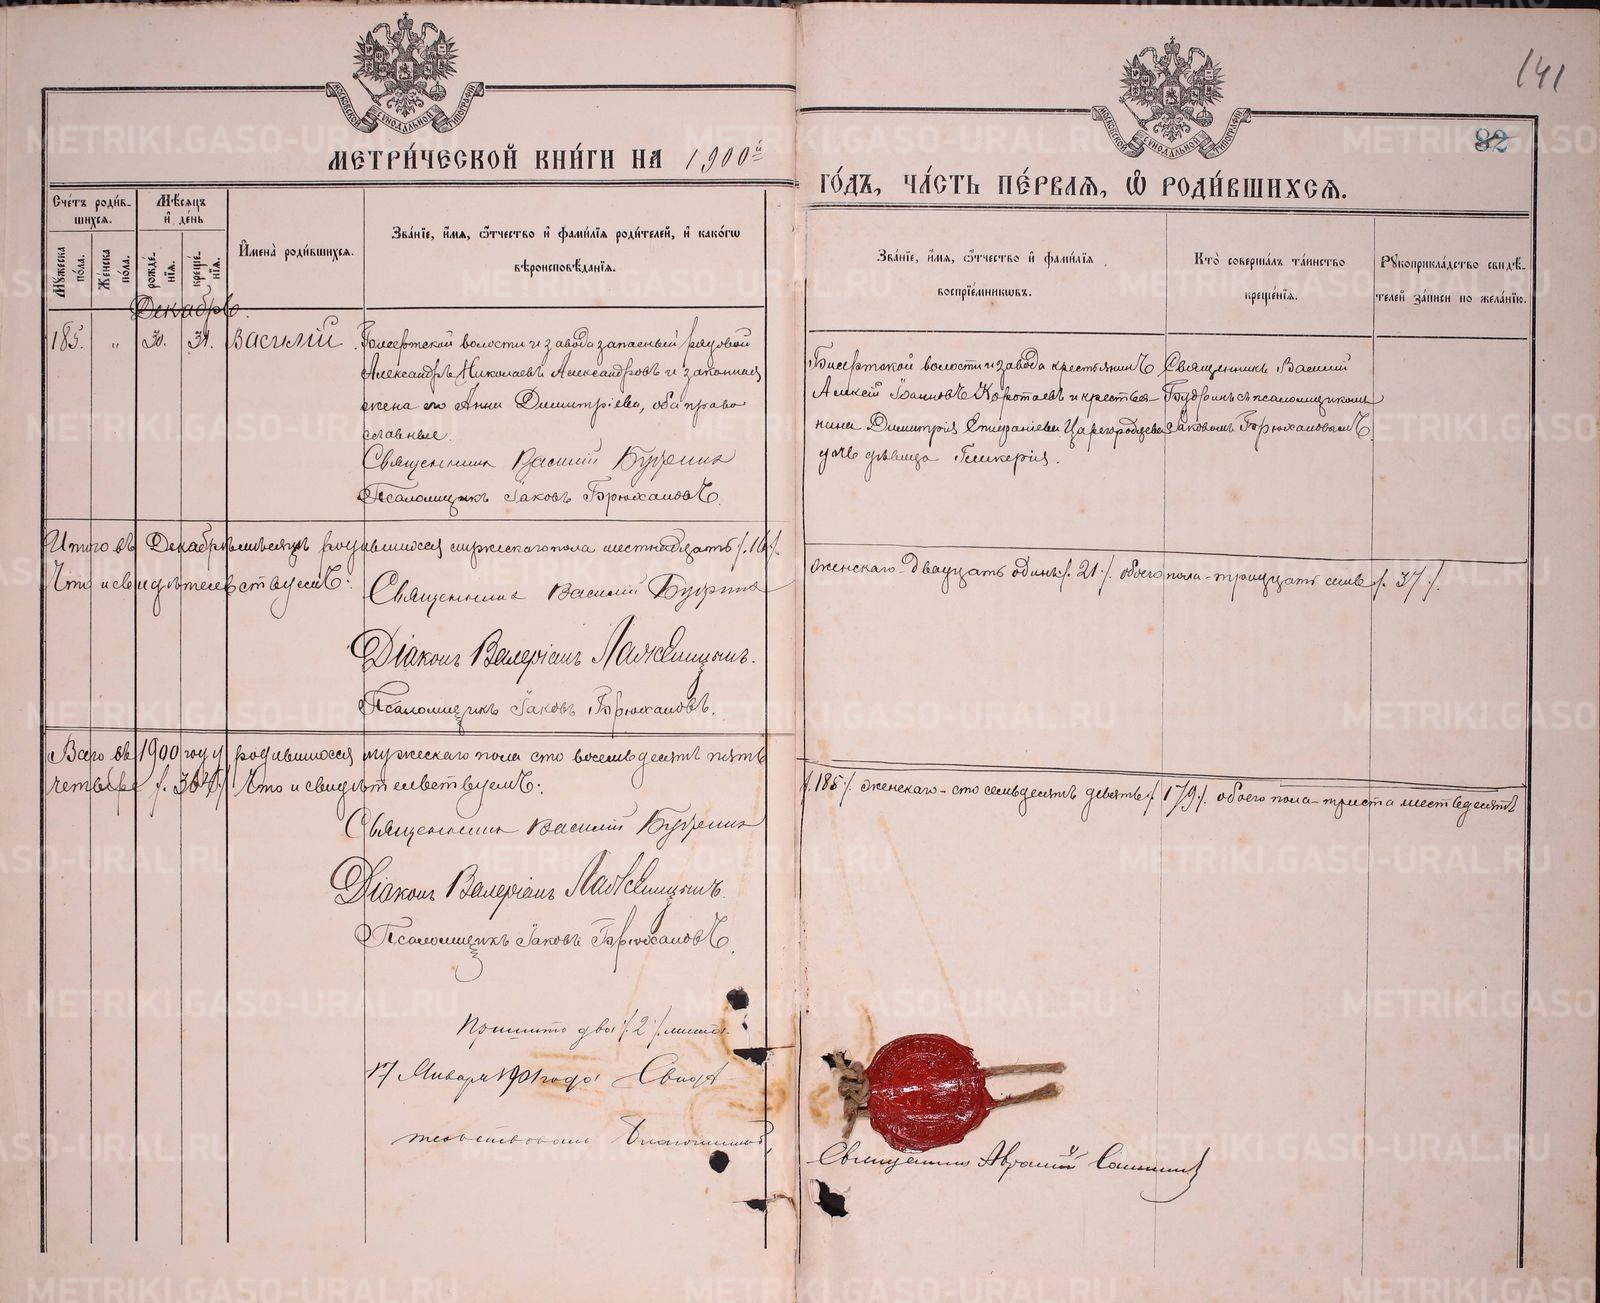 141
82
МОСКОВСКОЙ СѴНОДАЛЬНОЙ ТИПОГРАФИИ
МОСКОВСКОЙ СѴНОДАЛЬНОЙ ТИПОГРАФИИ
МЕТРИ́ЧЕСКОЙ КНИ́ГИ НА 1900й
ГО́ДЪ, ЧА́СТЬ ПЕ́РВАѦ, Ѽ РОДИ́ВШИХСѦ.
Сче́тъ роди́в-
шихсѧ.
Мѣ́сѧцъ
и҆ де́нь
Мꙋ́жеска по́ла.
Же́нска по́ла.
рожде́-нїѧ.
креще́-нїѧ.
И҆мена̀ роди́вшихсѧ.
Зва́нїе, и҆́мѧ, ѻ҆́тчество и҆ фами́лїѧ роди́телей, и҆ како́гѡ
вѣроисповѣ́данїѧ.
Зва́нїе, и҆́мѧ, ѻ҆́тчество и҆ фами́лїѧ
воспрїе́мникѡвъ.
Кто̀ соверша́лъ та́инство
креще́нїѧ.
Рꙋкоприкла́дство свидѣ́-
телей за́писи по жела́нїю.
Декабрь.
185. " 30. 31. Василий
Бисертской волости и завода запасный рядовой
Александръ Николаевъ Александровъ и законная
жена его Анна Димитріева, оба право
славные.
Священникъ Василій Будринъ
Псаломщикъ Іаковъ Брюхановъ.
Бисертской волости и завода крестьянинъ
Алексій Іоанновъ Коротаевъ и крестья
нина Димитрія Епифаніева Царегородцева
дочь дѣвица Гликерія.
Священникъ Василій
Будринъ съ псаломщикомъ
Іаковомъ Брюхановымъ.
Итого въ Декабрѣ мѣсяцѣ родившихся мужескаго пола шестнадцать /.16./.
женскаго - двадцать одинъ /. 21 ./. обоего пола - тридцать семь /. 37 ./.
Что и свидѣтельствуемъ:
Священникъ Василій Будринъ
Діаконъ Валеріанъ
Псаломщикъ Іаковъ Брюхановъ.
Всего въ 1900 году родившихся мужескаго пола сто восемьдесятъ пять
/.185./. женскаго - сто семьдесятъ девять /. 179 ./. обоего пола - триста шестьдесятъ
четыре /. 364 ./. Что и свидѣтельствуемъ:
Священникъ Василій Будринъ
Діаконъ Валеріанъ
Псаломщикъ Іаковъ Брюхановъ.
Пришито два /. 2 ./. листа.
17 Января 1901 года Свидѣ
тельствовалъ Благочинный
Священникъ Аврамій
METRIKI.GASO-URAL.RU